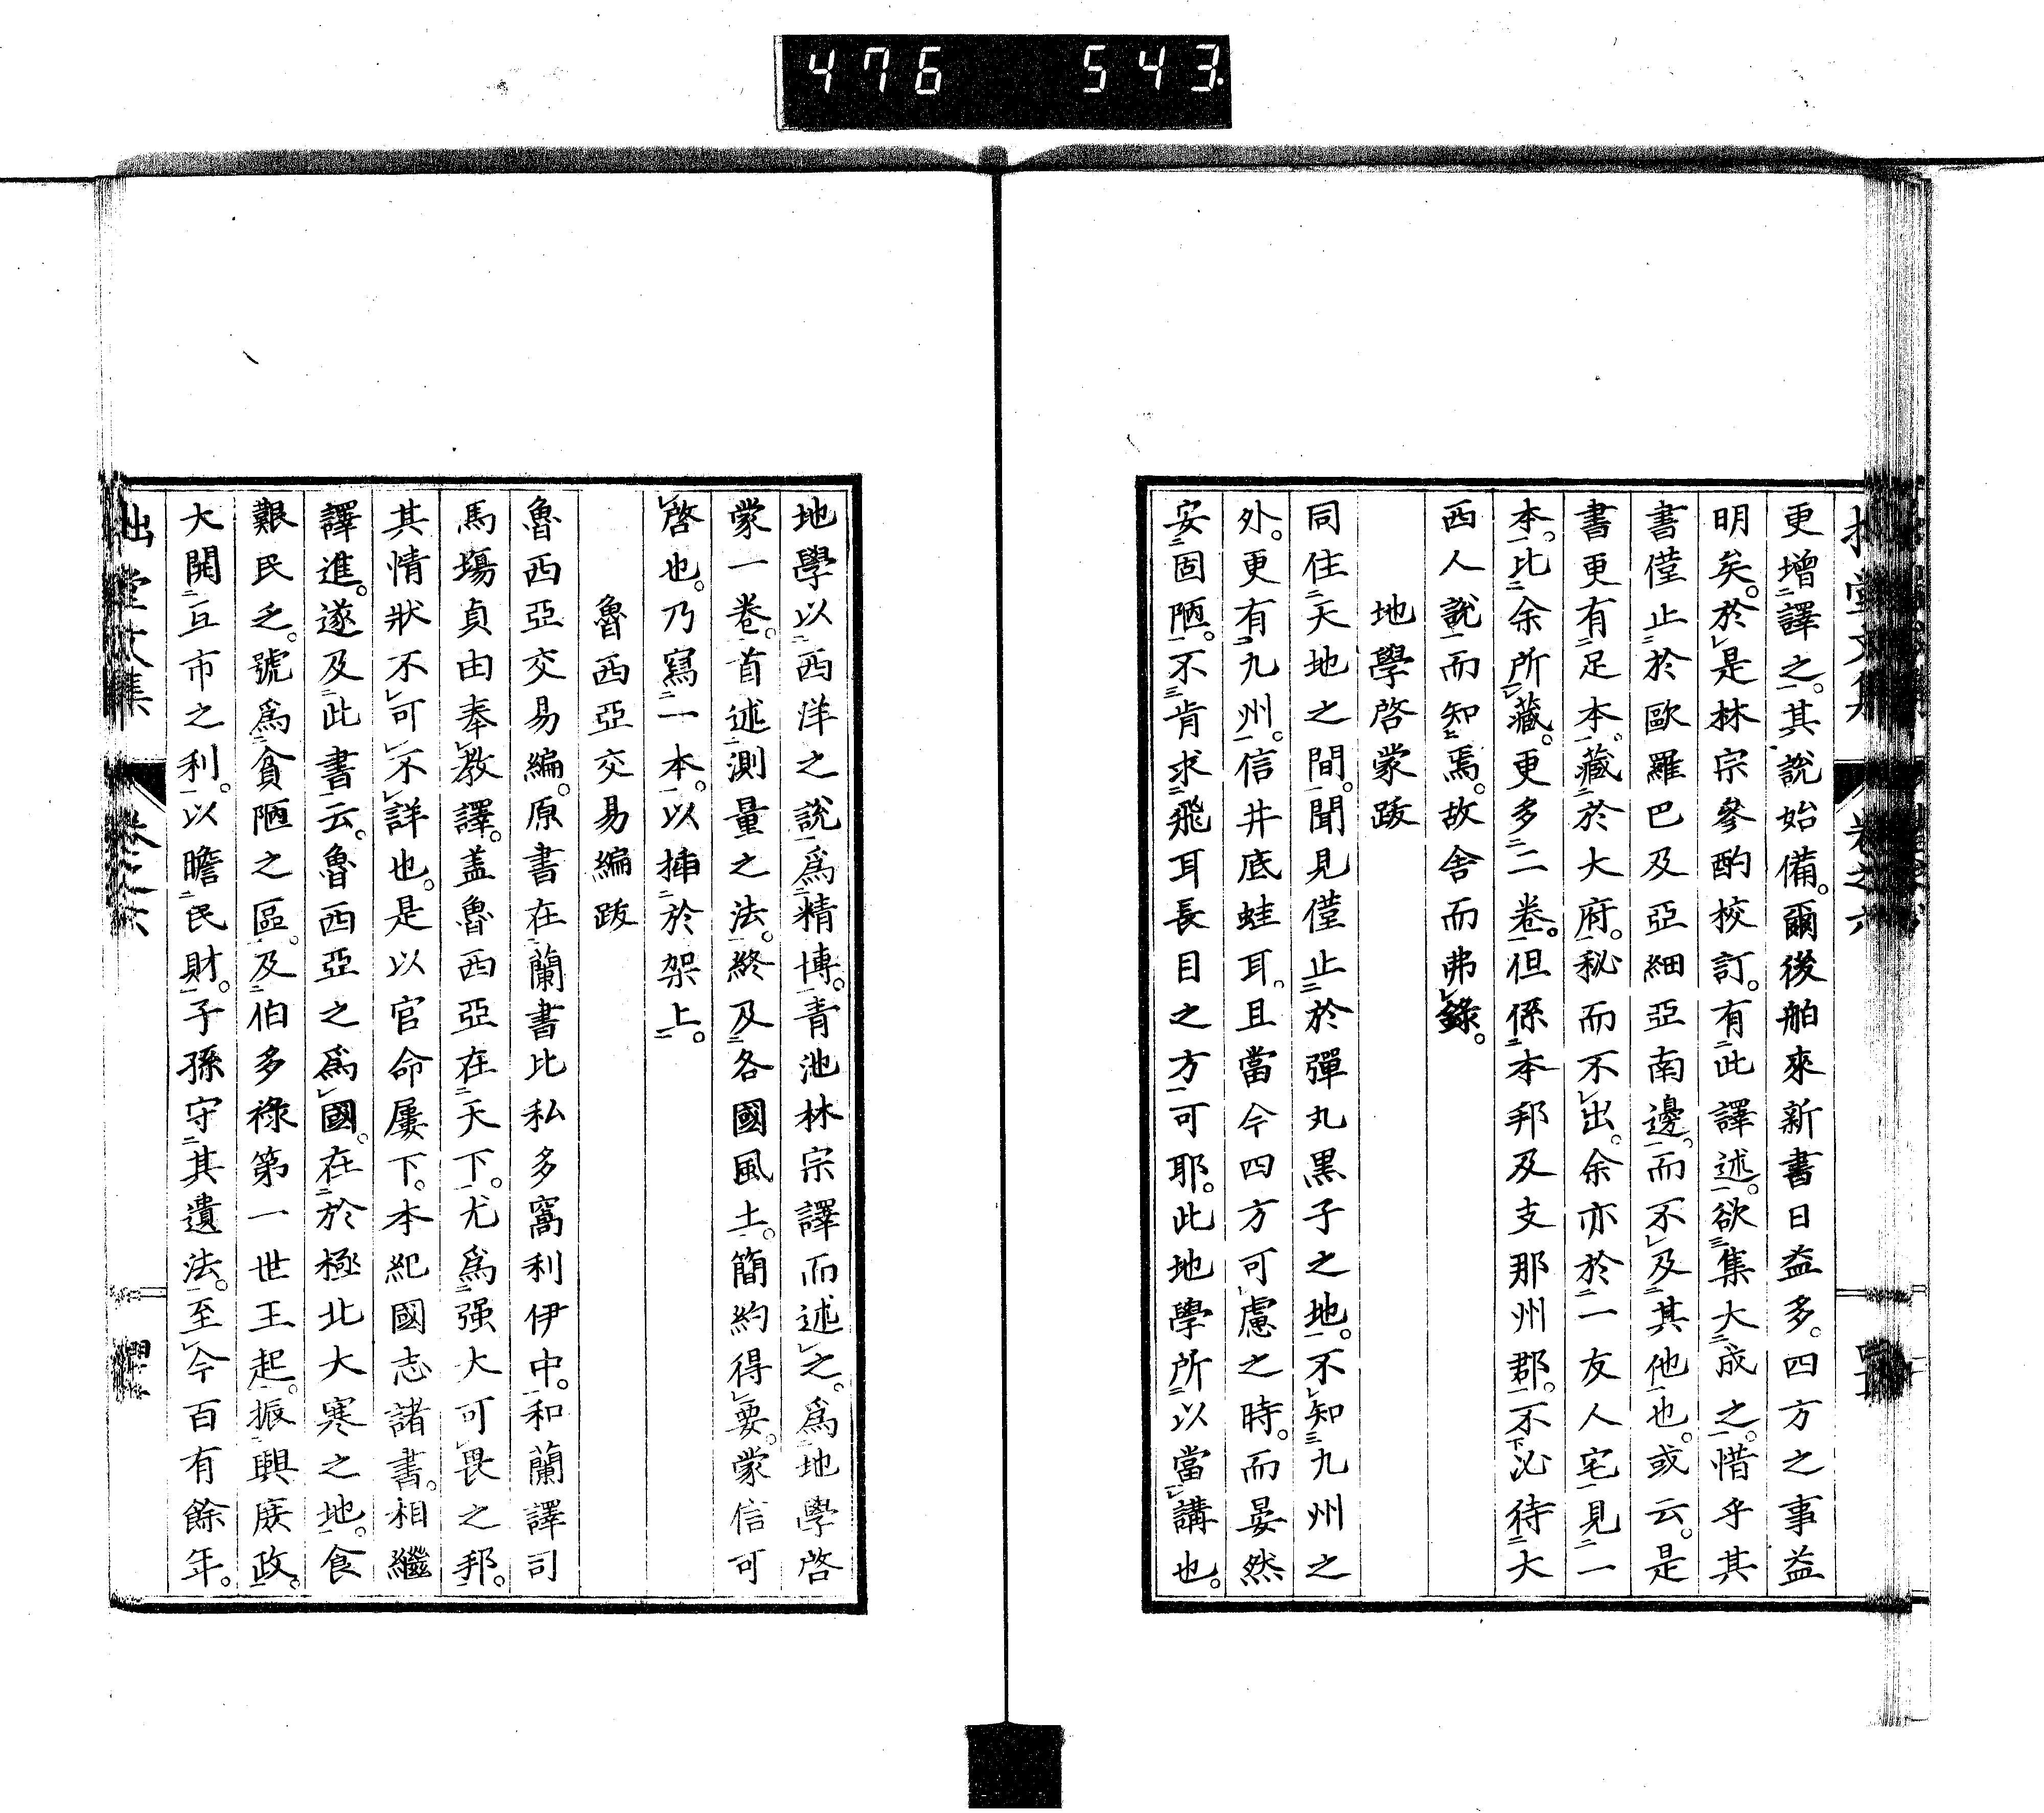 476 543
更增譯之。其說始備。爾後舶來新書日益多。四方之事益
明矣。於是林宗參酌挍訂。有此譯述。欲集大成之。惜乎其
書僅止於歐羅巴及亞細亞南邊。而不及其他也。或云。是
書更有足本。藏於大府。秘而不出。余亦於一友人宅見一
本。比余所藏。更多二卷。但係本邦及支那州郡。不必待大
西人說而知焉。故舍而弗錄。
地學啓蒙跋
同住天地之間。聞見僅止於彈丸黑子之地。不知九州之
外。更有九州。信井底蛙耳。且當今四方可慮之時。而晏然
安固陋。不肯求飛耳長目之方可耶。此地學所以當講也。
地學以西洋之說為精博。青池林宗譯而述之。為地學啓
蒙一卷。首述測量之法。終及各國風土。簡約得要。蒙信可
啓也。乃寫一本。以挿於架上。
魯西亞交易編跋
魯西亞交易編。原書在蘭書比私多窩利伊中。和蘭譯司
馬塲貞由奉教譯。盖魯西亞在天下。尤為强大可畏之邦。
其情狀不可不詳也。是以官命屢下。本紀國志諸書。相繼
譯進。遂及此書云。魯西亞之為國。在於極北大寒之地。食
艱民乏。號為貧陋之區。及伯多祿第一世王起。振興廢政。
大開互市之利。以瞻民財。子孫守其遺法。至今百有餘年。
拙堂文集 卷之六